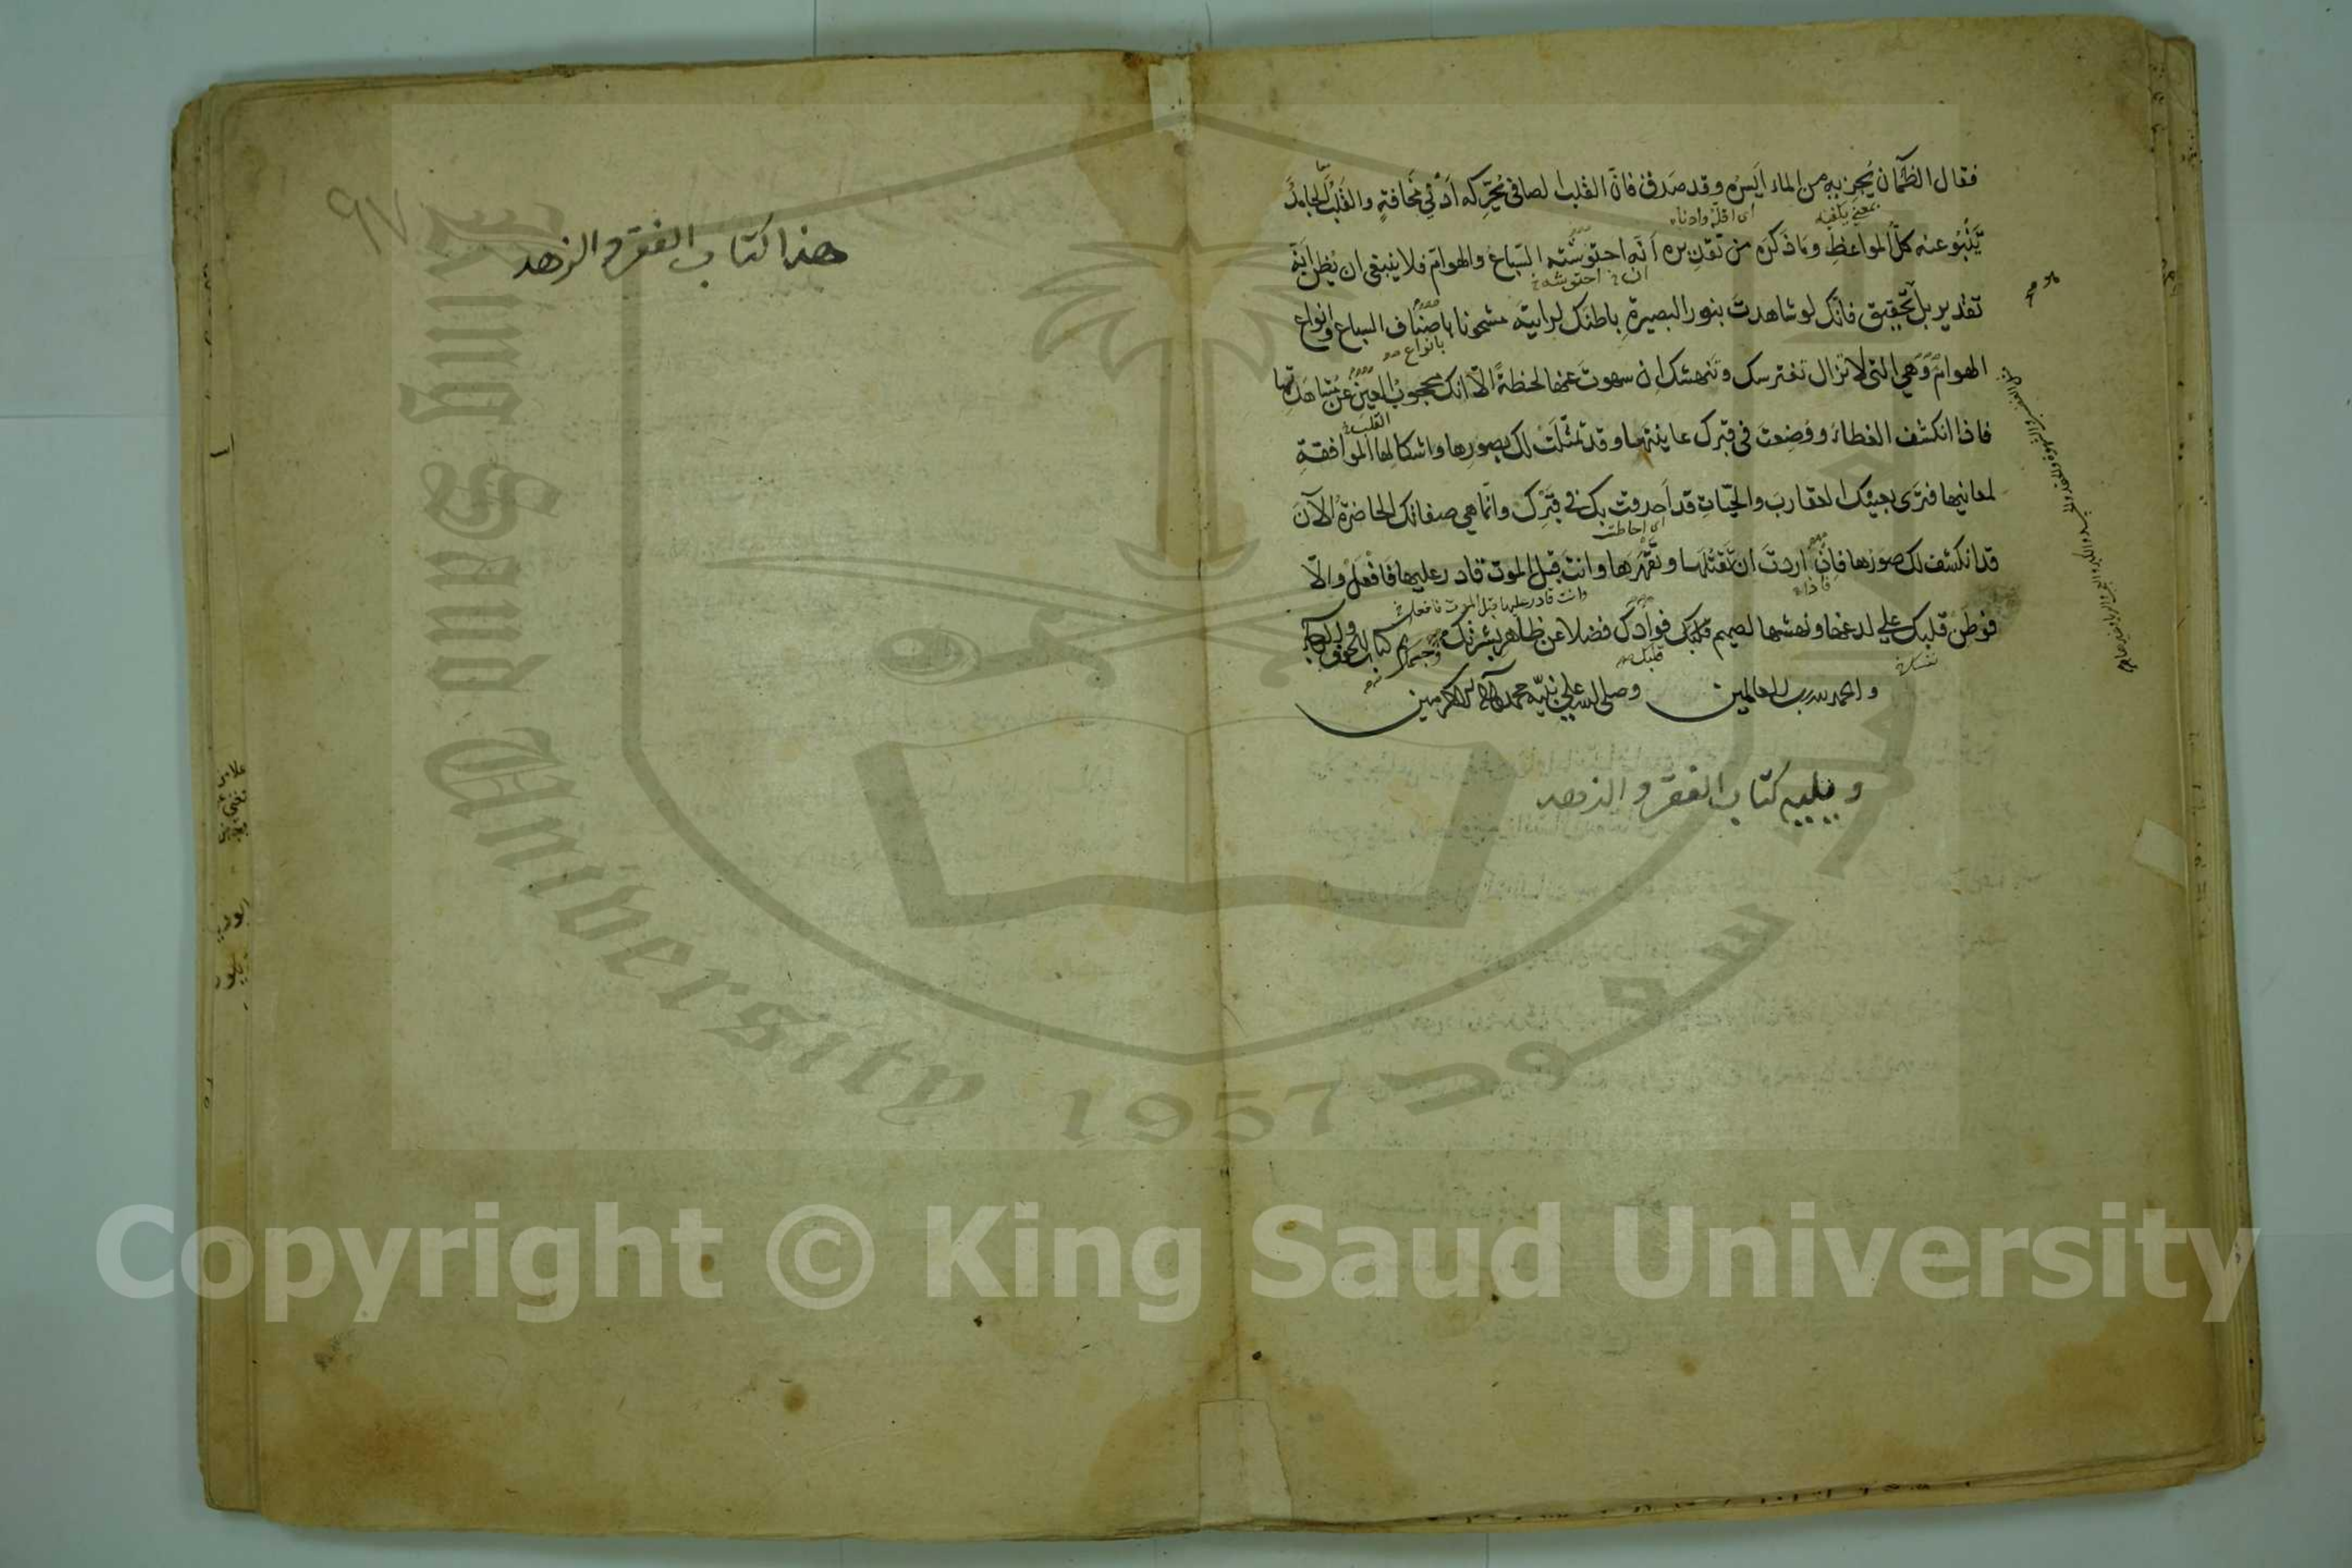 فقال الظمآن يجزيه من الماء ايسره وقد صدق فان القلب الصافى يحركه ادنى مخافة والقلب الجامد
بمعنى يكفيه
اى اقله وادناه
ينبو عنه كل المواعظ وما ذكره من تقديره انه احتوشته السباع والهوام فلا ينبغى ان يظن انه
ان احتوشه
تقدير بل تحقيق فانك لو شاهدت بنور البصيرة باطنك لرايته مشحونا باصناف السباع وانواع
بانواع
الهوام وهى التى لا تزال تفترسك وتنهشك ان سهوت عنها لحظة الا انك محجوب العين عن مشاهدتها
القلب
فاذا انكشف الغطاء ووضعت فى قبرك عاينتها وقد تمثلت لك بصورها واشكالها الموافقة
لمعانيها فترى بعينك العقارب والحيات قد احدقت بك فى قبرك وانما هى صفاتك الحاضرة الآن
اى احاطت
قد انكشف لك صورها فان اردت ان تقتلها وتقهرها وانت قبل الموت قادر عليها فافعل والا
فاذا
وانت قادر عليها قبل الموت فافعل
فوطن قلبك على لدغها ونهشها لصميم قلبك فؤادك فضلا عن ظاهر بشرتك تم كتاب الخوف والرجاء
نفسك
قلبك
والحمد لله رب العالمين وصلى الله على نبيه محمد وآله الاكرمين
ويليه كتاب الفقر والزهد
٩٧
هذا كتاب الفقر والزهد
King Saud University
1957
Copyright © King Saud University